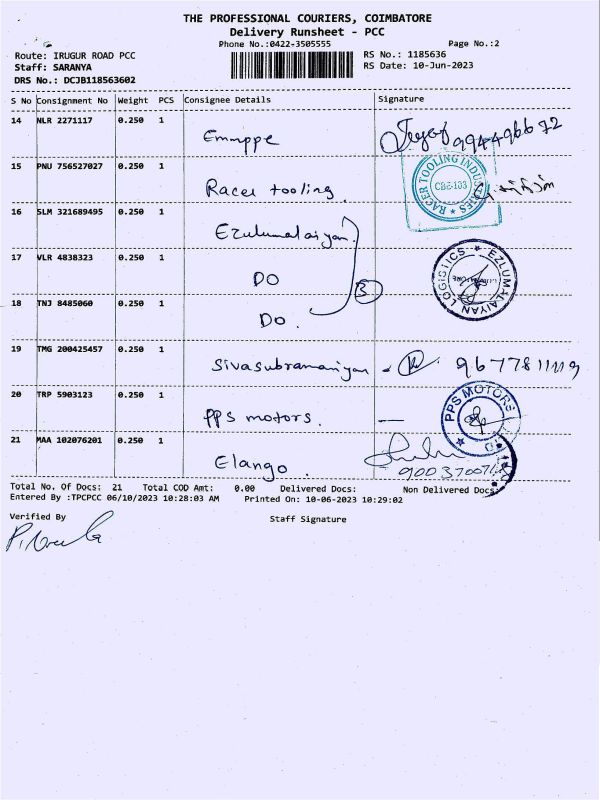 THE PROFESSIONAL COURIERS, COIMBATORE
Delivery Runsheet - PCC
Phone No.:0422-3505555 Page No.:2
Route: IRUGUR ROAD PCC RS No.: 1185636
Staff: SARANYA RS Date: 10-Jun-2023
DRS No.: DCJB118563602
S No Consignment No Weight PCS Consignee Details Signature
14 NLR 2271117 0.250 1
15 PNU 756527027 0.250 1 Racer tooling.
RACER TOOLING INDUSTRIES CBE-103
16 SLM 321689495 0.250 1 Ezulumalaiyan.
17 VLR 4838323 0.250 1 DO 3
EZLUMALAIYAN LOGISTICS
18 TNJ 8485060 0.250 1 Do.
19 TMG 200425457 0.250 1 Sivasubramaniyan
20 TRP 5903123 0.250 1 PPS motors. —
PPS MOTORS
21 MAA 102076201 0.250 1 Elango.
Total No. Of Docs: 21 Total COD Amt: 0.00 Delivered Docs: Non Delivered Docs:
Entered By :TPCPCC 06/10/2023 10:28:03 AM Printed On: 10-06-2023 10:29:02
Verified By Staff Signature